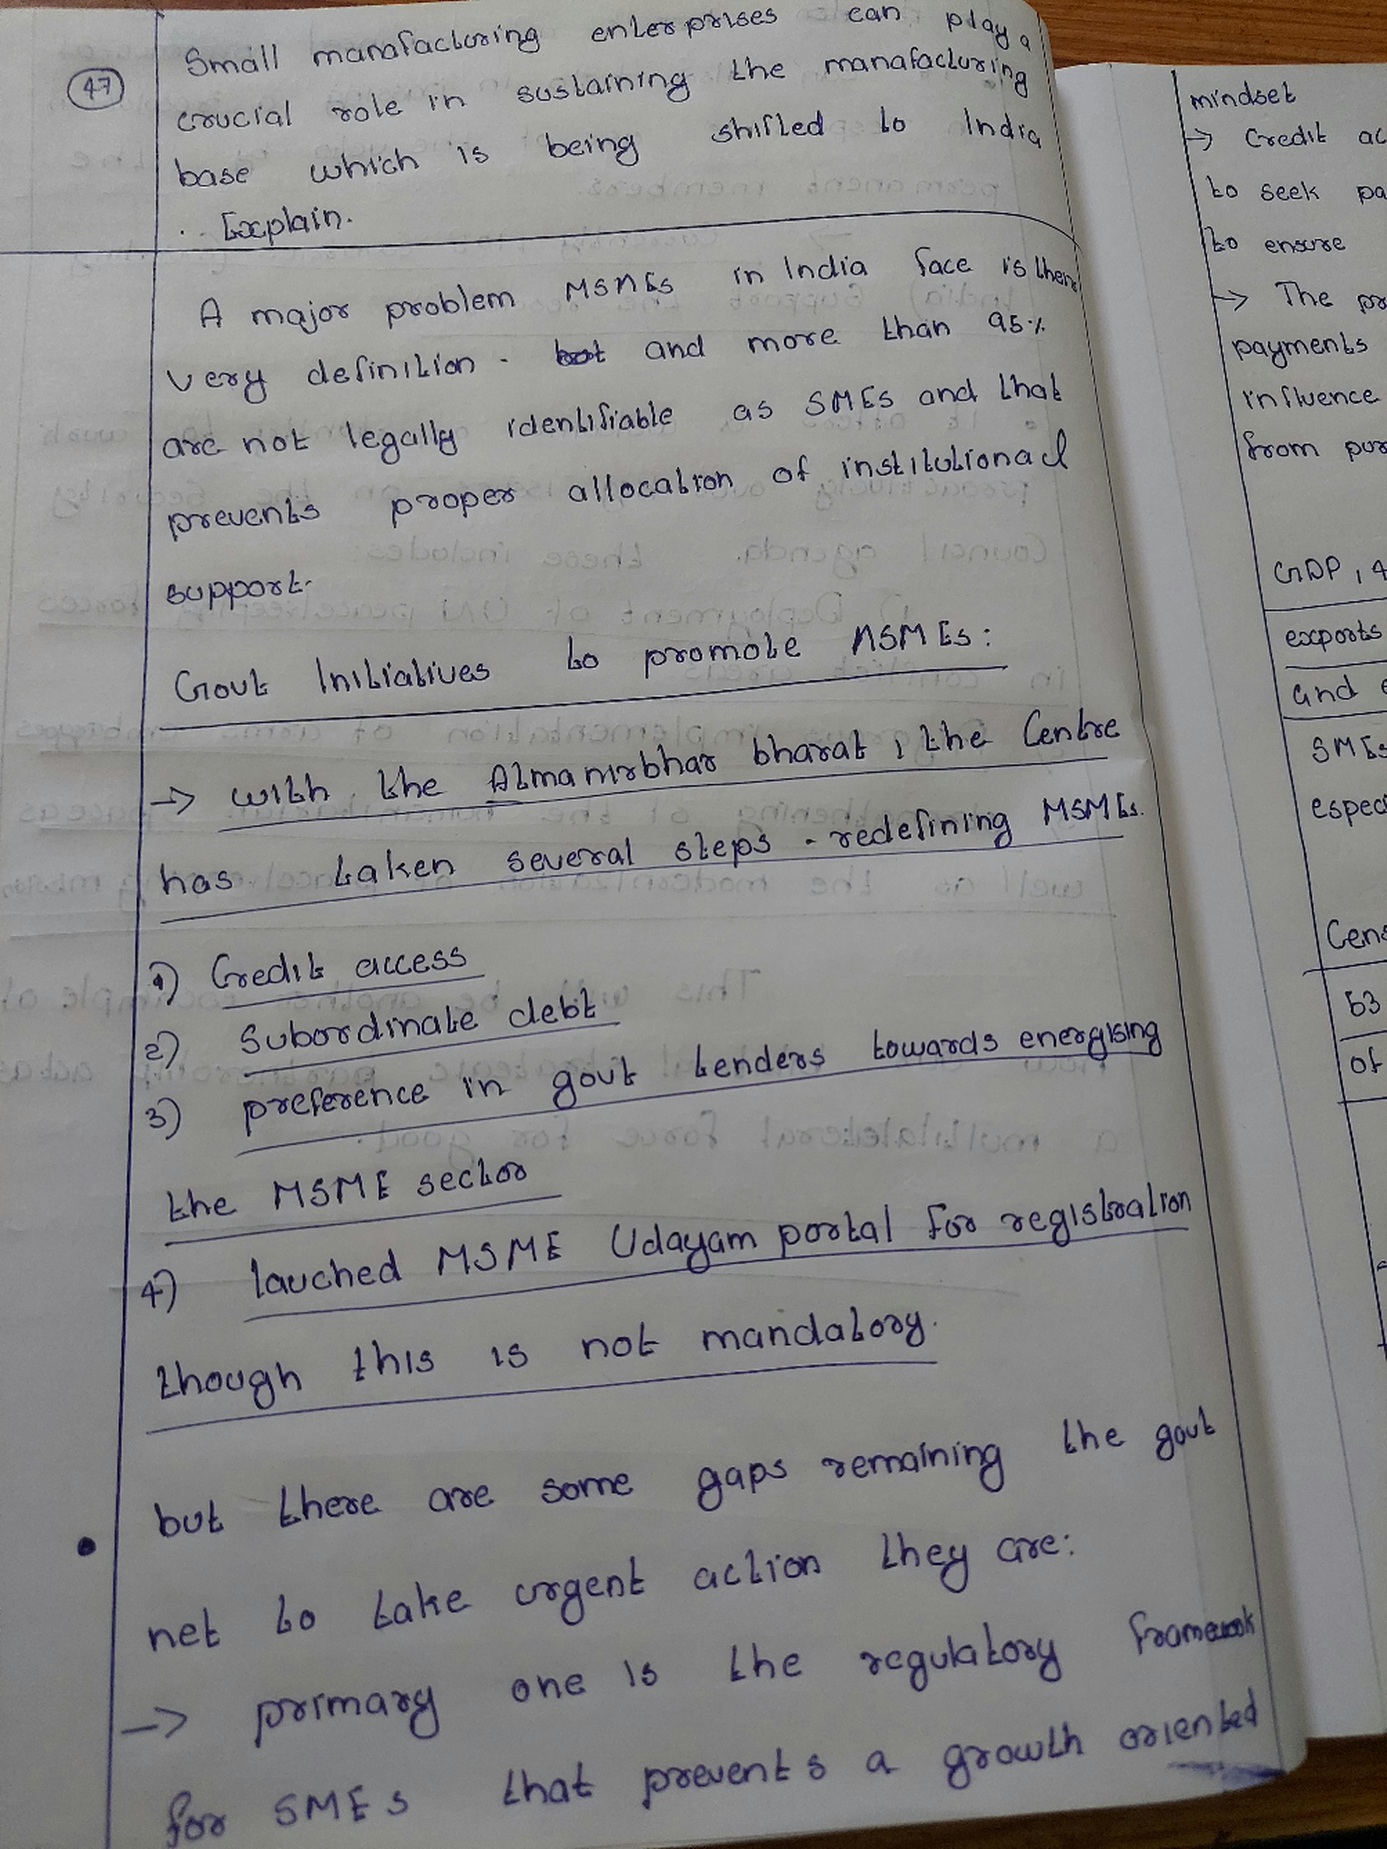 47
Small manafacturing enterprises can play a
crucial role in sustaining the manafacturing
base which is being shifted to India
. Explain.
A major problem MSMEs in India face is their
very definition - and more than 95%
are not legally identifiable as SMEs and that
prevents proper allocation of institutionacl
support.
Govt Initiatives to promote MSMEs:
→ with the Atmanirbhar bharat, the Centre
has taken several steps - redefining MSMEs.
1) Credit access
2) Subordinate debt
3) preference in govt tenders towards energising
the MSME sector
4) lauched MSME Udayam portal for registration
though this is not mandatory.
but there are some gaps remaining the govt
net to take urgent action they are:
→ primary one is the regulatory framework
for SMEs that prevents a growth oriented
mindset
→ Credit ac
to seek pa
to ensure
→ The pr
payments
influence
from pur
GDP, 4
exports
and
SMEs
espec
Cens
63
of